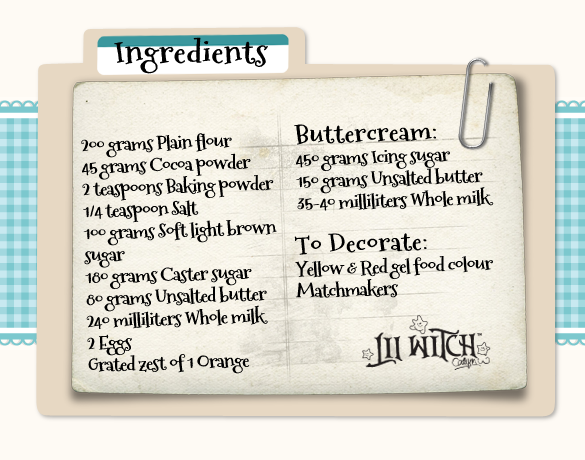 Ingredients
200 grams Plain flour
45 grams Cocoa powder
2 teaspoons Baking powder
1/4 teaspoon Salt
100 grams Soft light brown
sugar
180 grams Caster sugar
80 grams Unsalted butter
240 milliliters Whole milk
2 Eggs
Grated zest of 1 Orange
Buttercream:
450 grams Icing sugar
150 grams Unsalted butter
35-40 milliliters Whole milk
To Decorate:
Yellow & Red gel food colour
Matchmakers
Lil WiTCH™